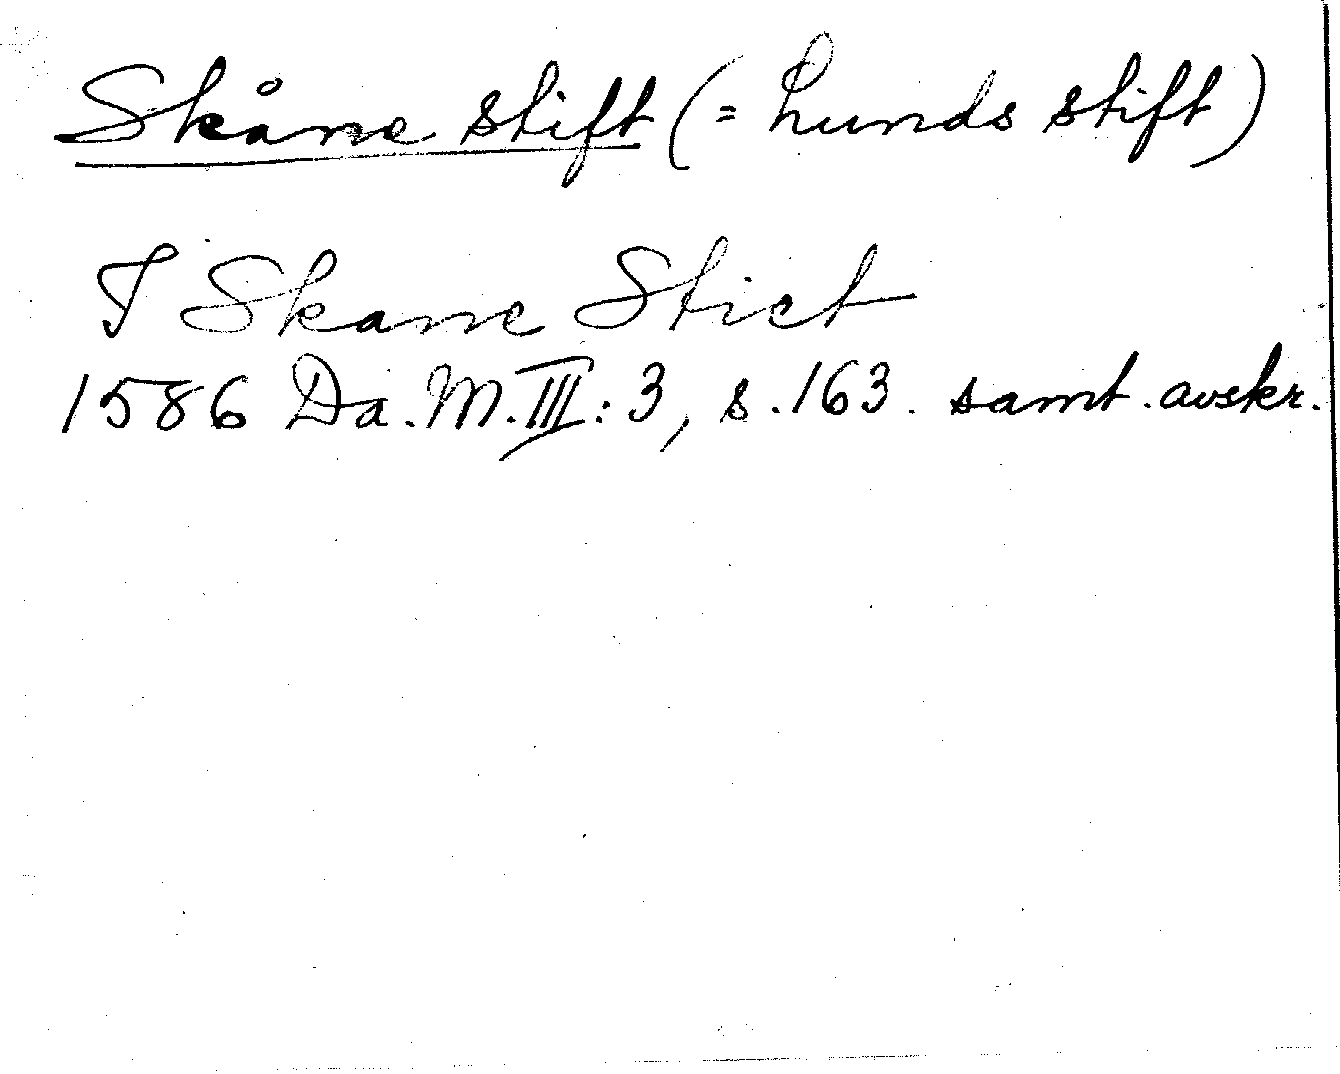 Skåne stift (= Lunds stift)
I Skane Stict
1586 Da. M. III: 3, s. 163. samt. avskr.